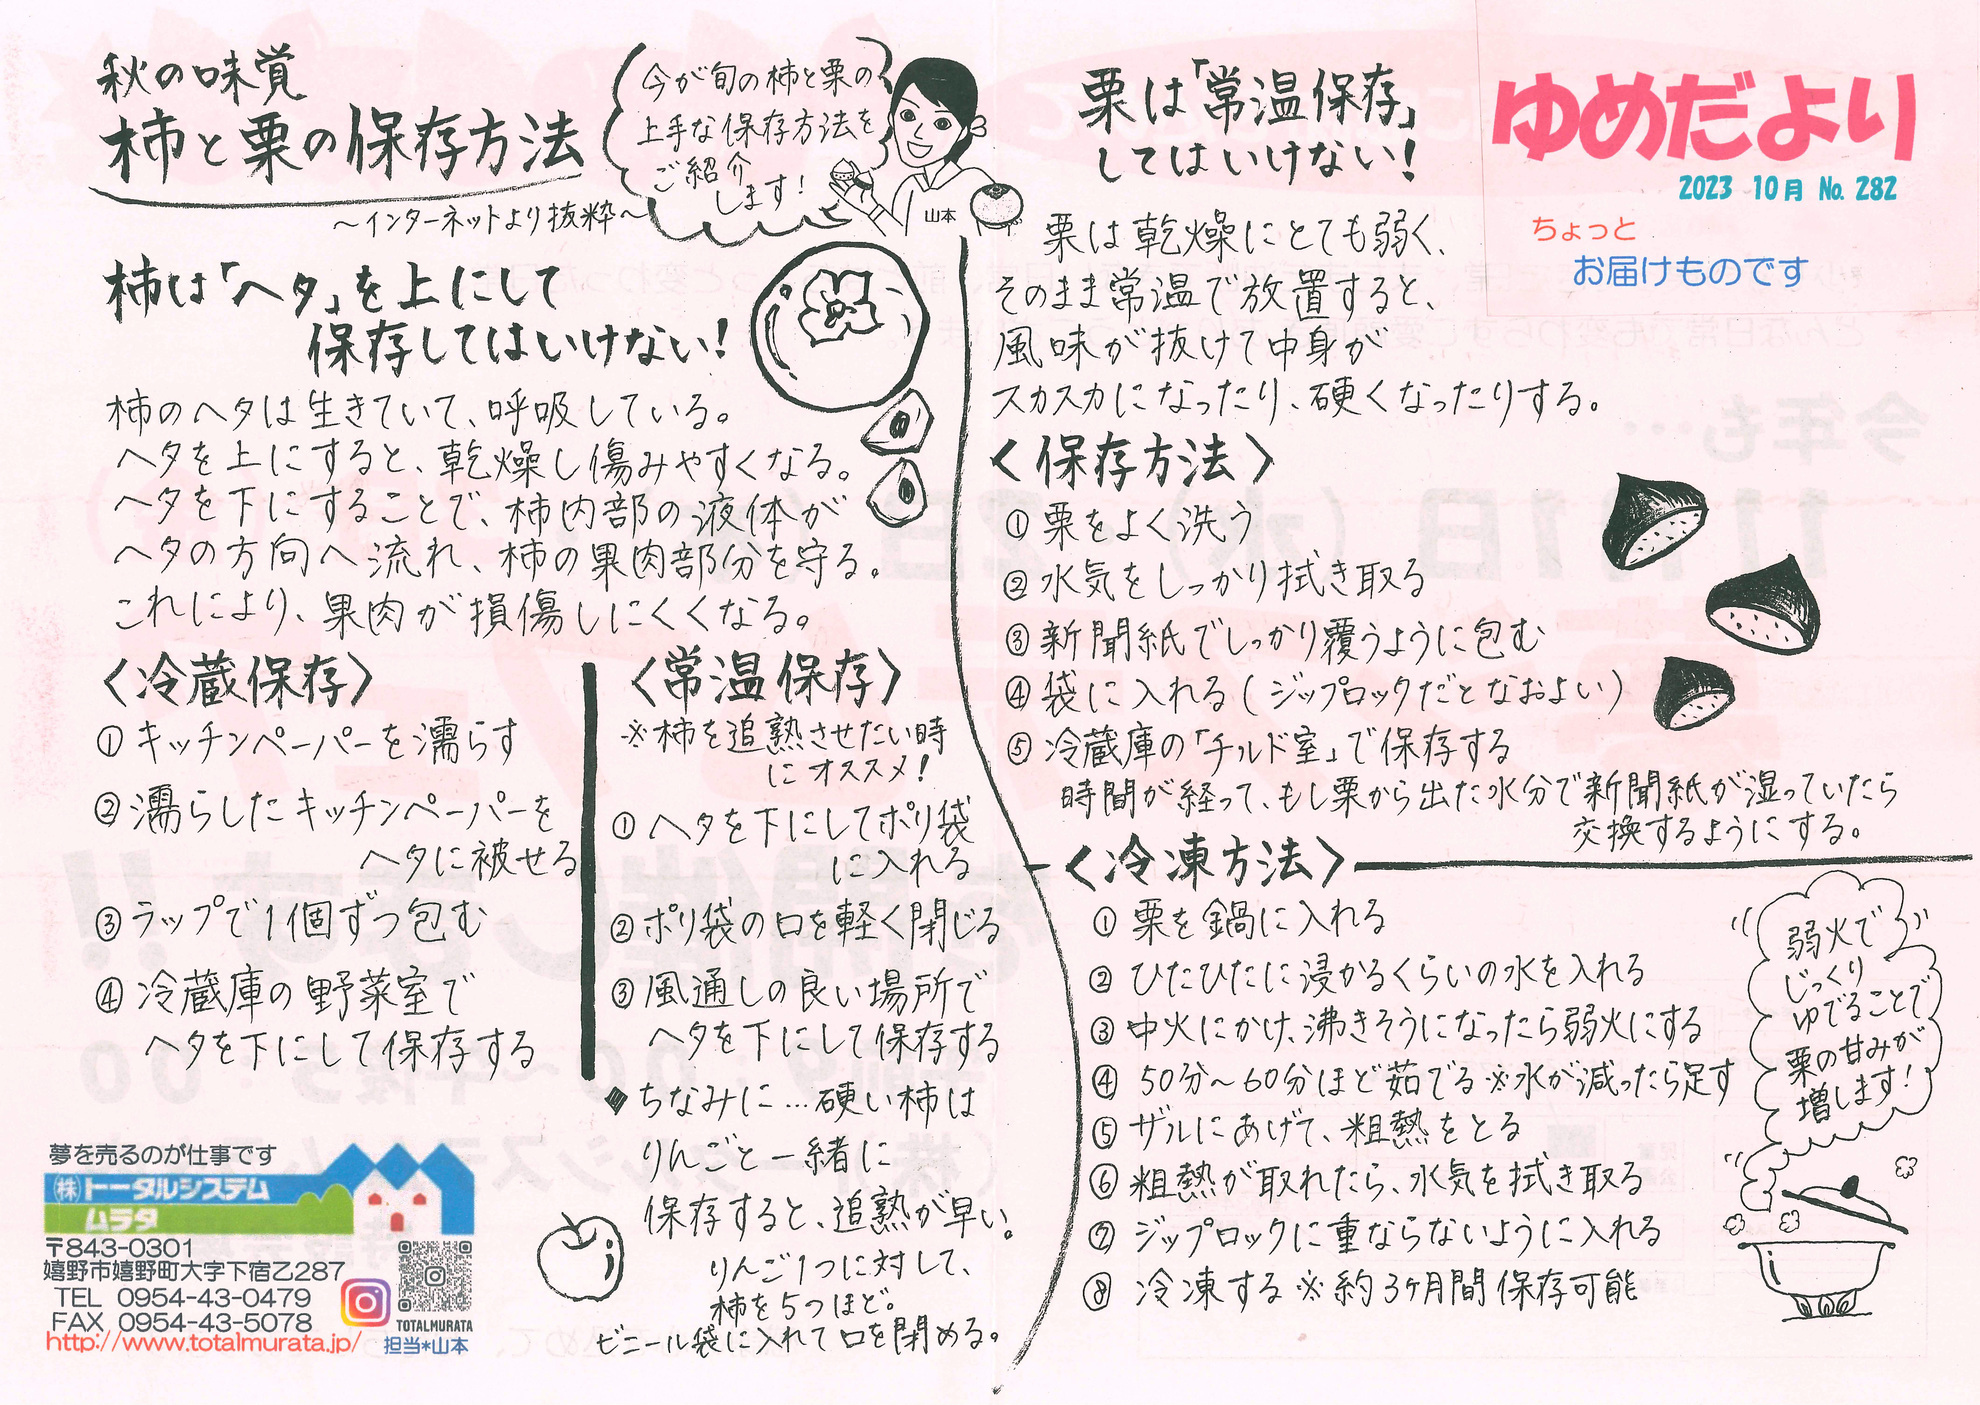 秋の味覚
柿と栗の保存方法
～インターネットより抜粋～
今が旬の柿と栗の
上手な保存方法を
ご紹介
します!
山本
柿は「ヘタ」を上にして
保存してはいけない!
柿のヘタは生きていて、呼吸している。
ヘタを上にすると、乾燥し傷みやすくなる。
ヘタを下にすることで、柿内部の液体が
ヘタの方向へ流れ、柿の果肉部分を守る。
これにより、果肉が損傷しにくくなる。
〈冷蔵保存〉
①キッチンペーパーを濡らす
②濡らしたキッチンペーパーを
ヘタに被せる
③ラップで1個ずつ包む
④冷蔵庫の野菜室で
ヘタを下にして保存する
〈常温保存〉
※柿を追熟させたい時
にオススメ!
①ヘタを下にしてポリ袋
に入れる
②ポリ袋の口を軽く閉じる
③風通しの良い場所で
ヘタを下にして保存する
◆ちなみに…硬い柿は
りんごと一緒に
保存すると、追熟が早い。
りんご1つに対して、
柿を5つほど。
ビニール袋に入れて口を閉める。
夢を売るのが仕事です
(株)トータルシステム
ムラタ
〒843-0301
嬉野市嬉野町大字下宿乙287
TEL 0954-43-0479
FAX 0954-43-5078
http://www.totalmurata.jp/
TOTALMURATA
担当*山本
栗は「常温保存」
してはいけない!
栗は乾燥にとても弱く、
そのまま常温で放置すると、
風味が抜けて中身が
スカスカになったり、硬くなったりする。
〈保存方法〉
①栗をよく洗う
②水気をしっかり拭き取る
③新聞紙でしっかり覆うように包む
④袋に入れる(ジップロックだとなおよい)
⑤冷蔵庫の「チルド室」で保存する
時間が経って、もし栗から出た水分で新聞紙が湿っていたら
交換するようにする。
〈冷凍方法〉
①栗を鍋に入れる
②ひたひたに浸かるくらいの水を入れる
③中火にかけ、沸きそうになったら弱火にする
④50分～60分ほど茹でる※水が減ったら足す
⑤ザルにあげて、粗熱をとる
⑥粗熱が取れたら、水気を拭き取る
⑦ジップロックに重ならないように入れる
⑧冷凍する※約3ヶ月間保存可能
弱火で
じっくり
ゆでることで
栗の甘みが
増します!
ゆめだより
2023 10月 No. 282
ちょっと
お届けものです